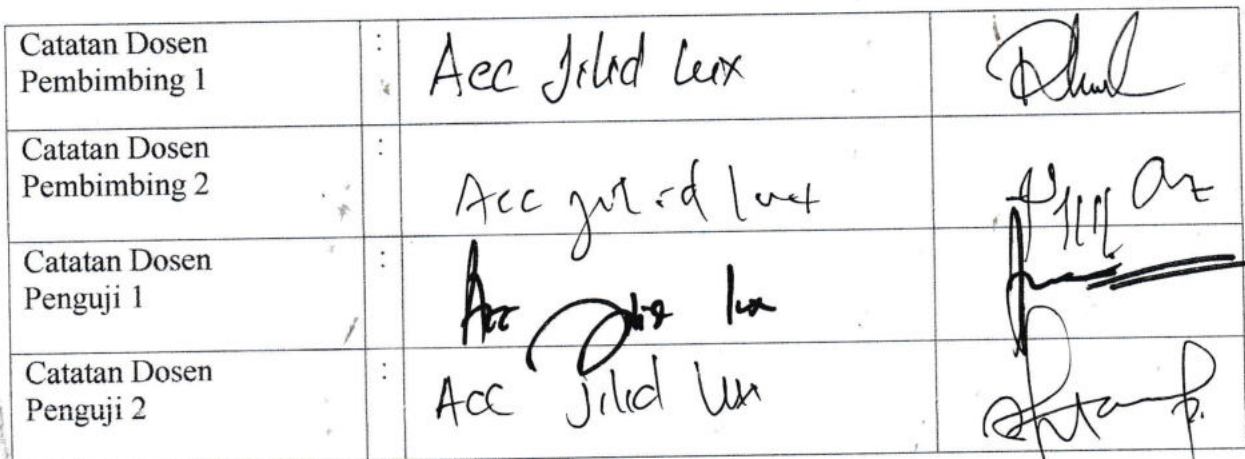 Catatan Dosen
Pembimbing 1
:
Acc Jilid lux
Catatan Dosen
Pembimbing 2
:
Acc jilid lux
Catatan Dosen
Penguji 1
:
Acc Jilid lux
Catatan Dosen
Penguji 2
:
Acc Jilid lux